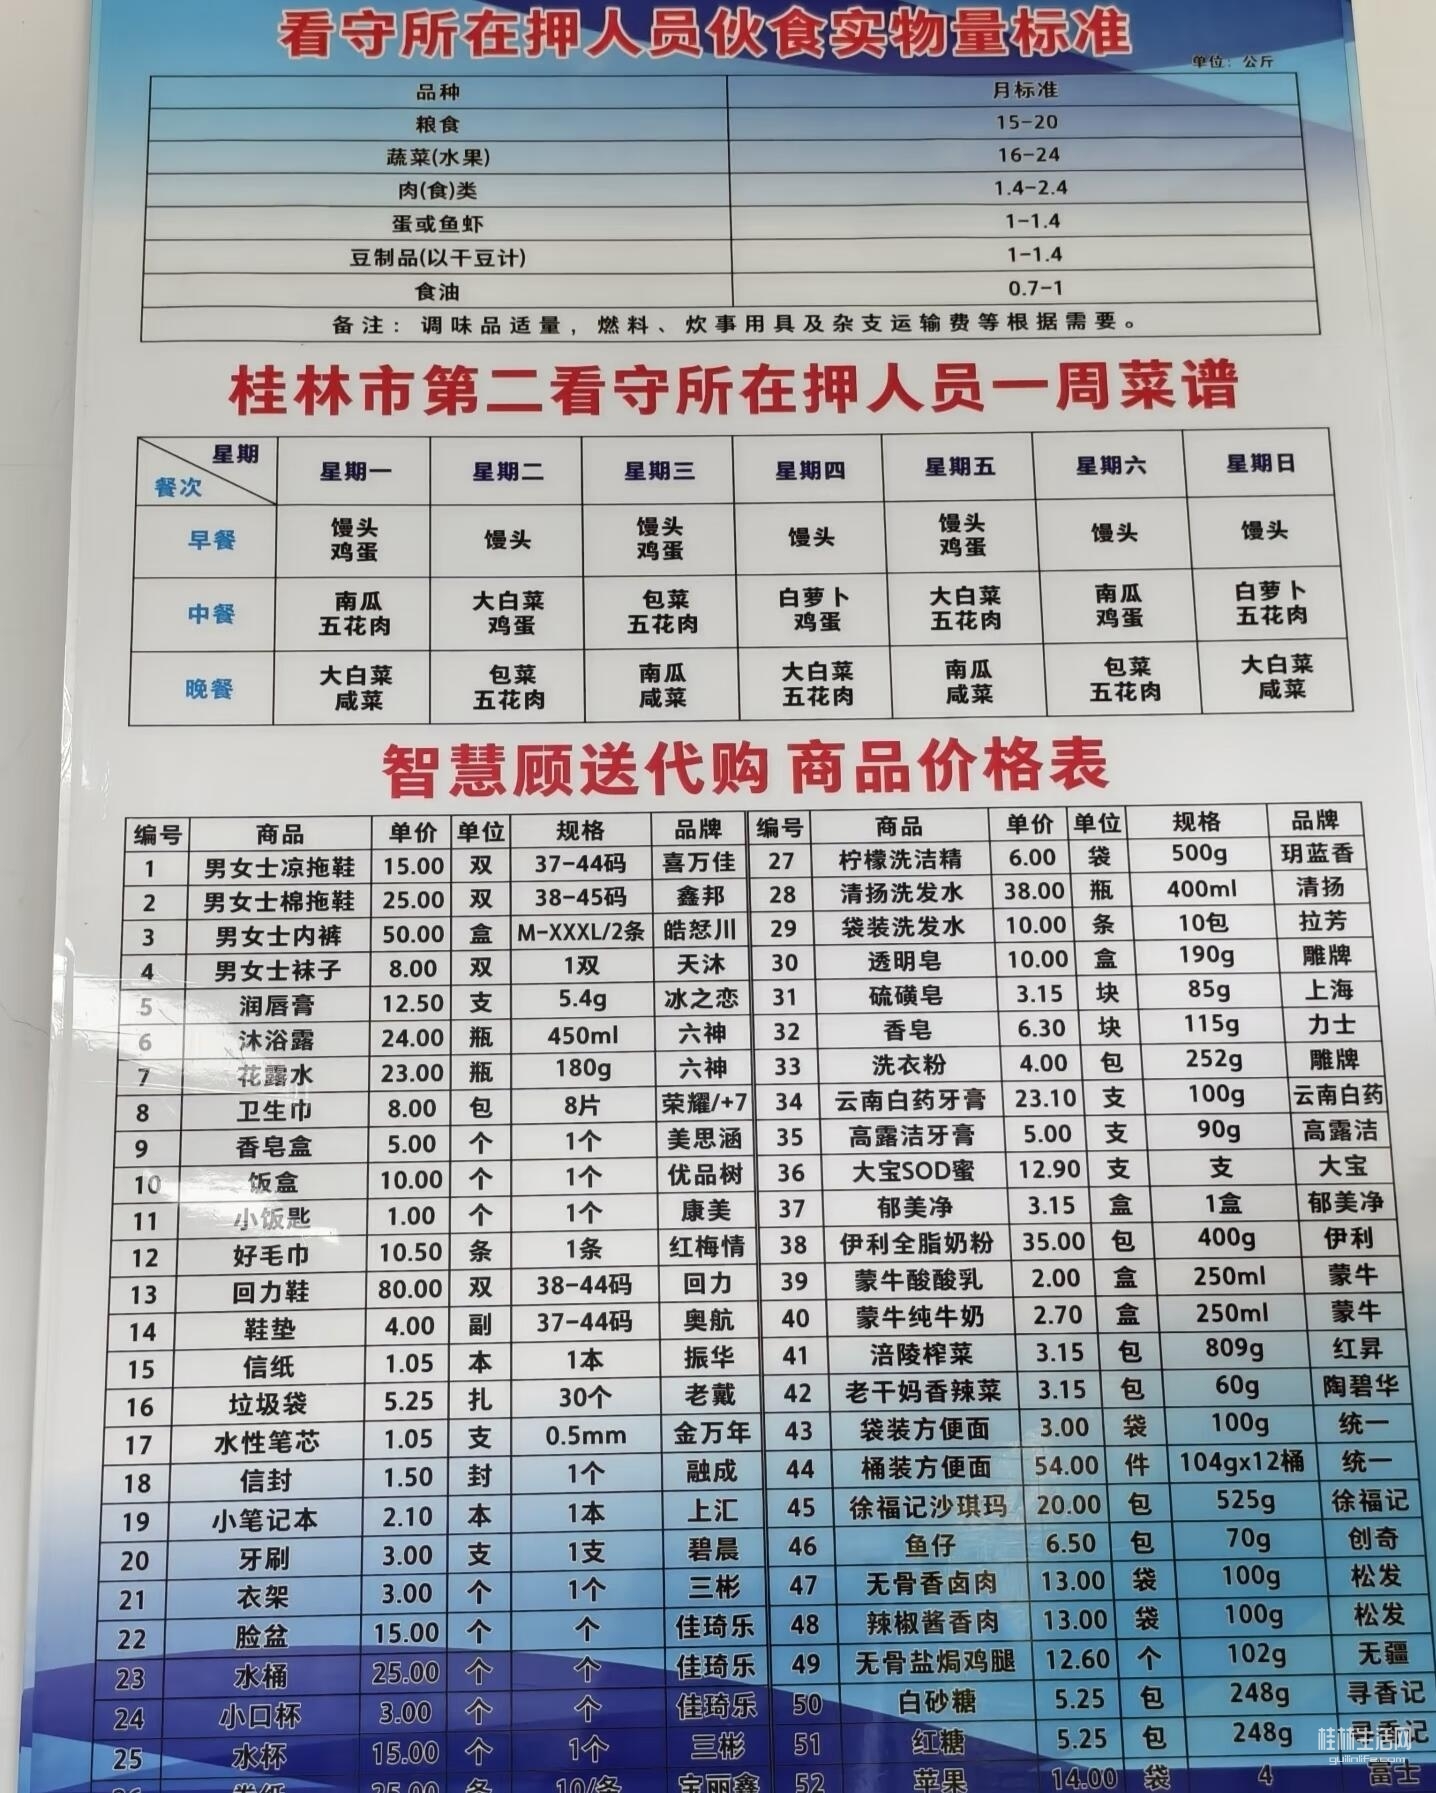 看守所在押人员伙食实物量标准
单位：公斤
品种 月标准
粮食 15-20
蔬菜(水果) 16-24
肉(食)类 1.4-2.4
蛋或鱼虾 1-1.4
豆制品(以干豆计) 1-1.4
食油 0.7-1
备注：调味品适量，燃料、炊事用具及杂支运输费等根据需要。
桂林市第二看守所在押人员一周菜谱
星期 餐次 星期一 星期二 星期三 星期四 星期五 星期六 星期日
早餐 馒头 鸡蛋 馒头 馒头 鸡蛋 馒头 馒头 鸡蛋 馒头 馒头
中餐 南瓜 五花肉 大白菜 鸡蛋 包菜 五花肉 白萝卜 鸡蛋 大白菜 五花肉 南瓜 鸡蛋 白萝卜 五花肉
晚餐 大白菜 咸菜 包菜 五花肉 南瓜 咸菜 大白菜 五花肉 南瓜 咸菜 包菜 五花肉 大白菜 咸菜
智慧顾送代购 商品价格表
编号 商品 单价 单位 规格 品牌 编号 商品 单价 单位 规格 品牌
1 男女士凉拖鞋 15.00 双 37-44码 喜万佳 27 柠檬洗洁精 6.00 袋 500g 玥蓝香
2 男女士棉拖鞋 25.00 双 38-45码 鑫邦 28 清扬洗发水 38.00 瓶 400ml 清扬
3 男女士内裤 50.00 盒 M-XXXL/2条 皓恏川 29 袋装洗发水 10.00 条 10包 拉芳
4 男女士袜子 8.00 双 1双 天沐 30 透明皂 10.00 盒 190g 雕牌
5 润唇膏 12.50 支 5.4g 冰之恋 31 硫磺皂 3.15 块 85g 上海
6 沐浴露 24.00 瓶 450ml 六神 32 香皂 6.30 块 115g 力士
7 花露水 23.00 瓶 180g 六神 33 洗衣粉 4.00 包 252g 雕牌
8 卫生巾 8.00 包 8片 荣耀/+7 34 云南白药牙膏 23.10 支 100g 云南白药
9 香皂盒 5.00 个 1个 美思涵 35 高露洁牙膏 5.00 支 90g 高露洁
10 饭盒 10.00 个 1个 优品树 36 大宝SOD蜜 12.90 支 支 大宝
11 小饭匙 1.00 个 1个 康美 37 郁美净 3.15 盒 1盒 郁美净
12 好毛巾 10.50 条 1条 红梅情 38 伊利全脂奶粉 35.00 包 400g 伊利
13 回力鞋 80.00 双 38-44码 回力 39 蒙牛酸酸乳 2.00 盒 250ml 蒙牛
14 鞋垫 4.00 副 37-44码 奥航 40 蒙牛纯牛奶 2.70 盒 250ml 蒙牛
15 信纸 1.05 本 1本 振华 41 涪陵榨菜 3.15 包 809g 红昇
16 垃圾袋 5.25 扎 30个 老戴 42 老干妈香辣菜 3.15 包 60g 陶碧华
17 水性笔芯 1.05 支 0.5mm 金万年 43 袋装方便面 3.00 袋 100g 统一
18 信封 1.50 封 1个 融成 44 桶装方便面 54.00 件 104gx12桶 统一
19 小笔记本 2.10 本 1本 上汇 45 徐福记沙琪玛 20.00 包 525g 徐福记
20 牙刷 3.00 支 1支 碧晨 46 鱼仔 6.50 包 70g 创奇
21 衣架 3.00 个 1个 三彬 47 无骨香卤肉 13.00 袋 100g 松发
22 脸盆 15.00 个 个 佳琦乐 48 辣椒酱香肉 13.00 袋 100g 松发
23 水桶 25.00 个 个 佳琦乐 49 无骨盐焗鸡腿 12.60 个 102g 无疆
24 小口杯 3.00 个 个 佳琦乐 50 白砂糖 5.25 包 248g 寻香记
25 水杯 15.00 个 1个 三彬 51 红糖 5.25 包 248g 寻香记
26 卷纸 25.00 条 10/条 宝丽鑫 52 苹果 14.00 袋 4 富士
桂林生活网
guilinlife.com